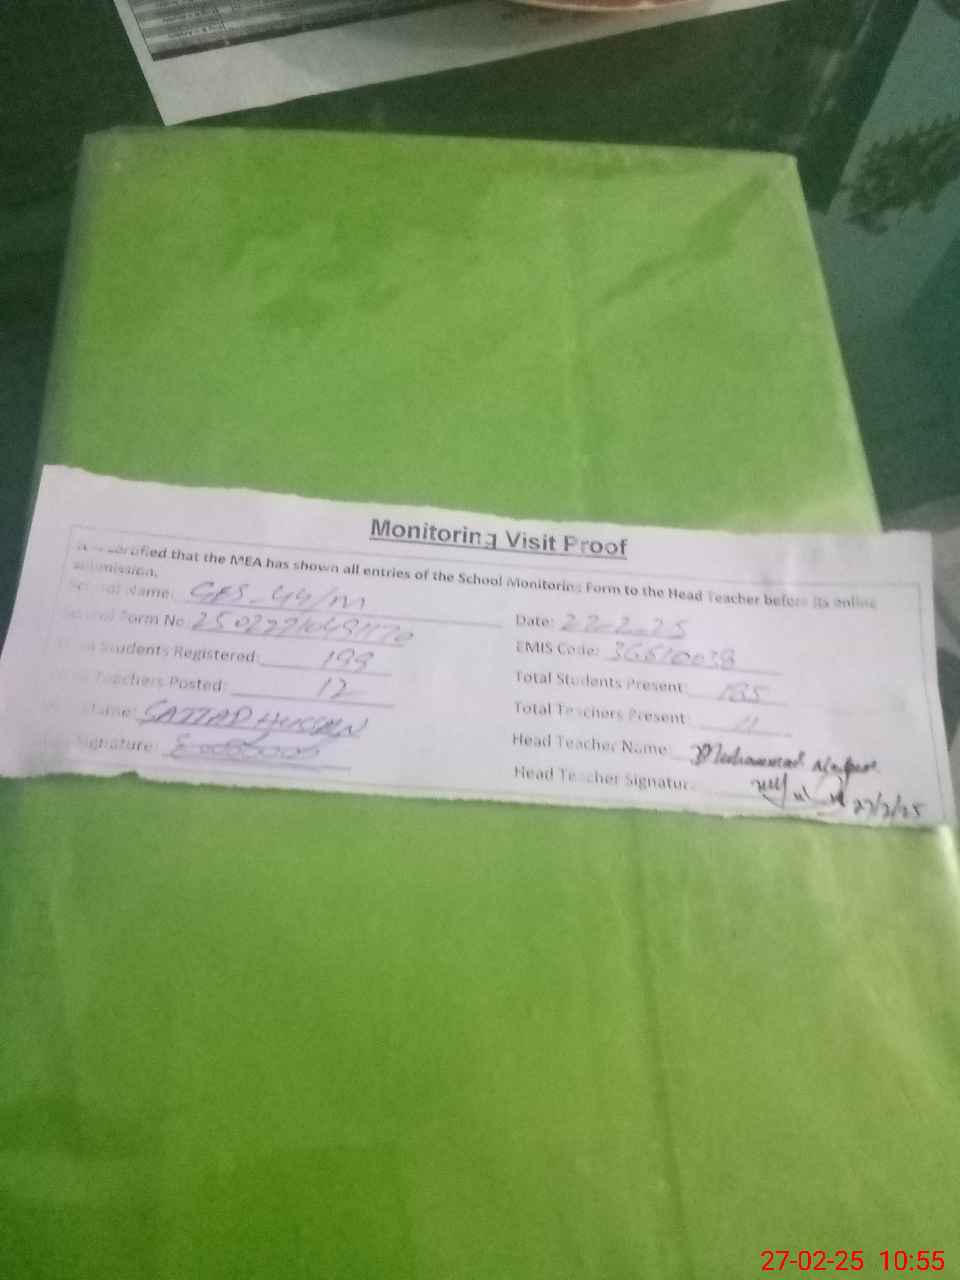 Monitoring Visit Proof
certified that the MEA has shown all entries of the School Monitoring Form to the Head Teacher before its online
submission.
School Name: GES 44/M
Date: 27-2-25
School Form No
EMIS Code: 36610038
Students Registered: 199
Total Students Present: 185
Teachers Posted: 12
Total Teachers Present: 11
Name: SAJJAD HUSSAIN
Head Teacher Name: Muhammad
Signature:
Head Teacher Signature: 27/2/25
27-02-25 10:55